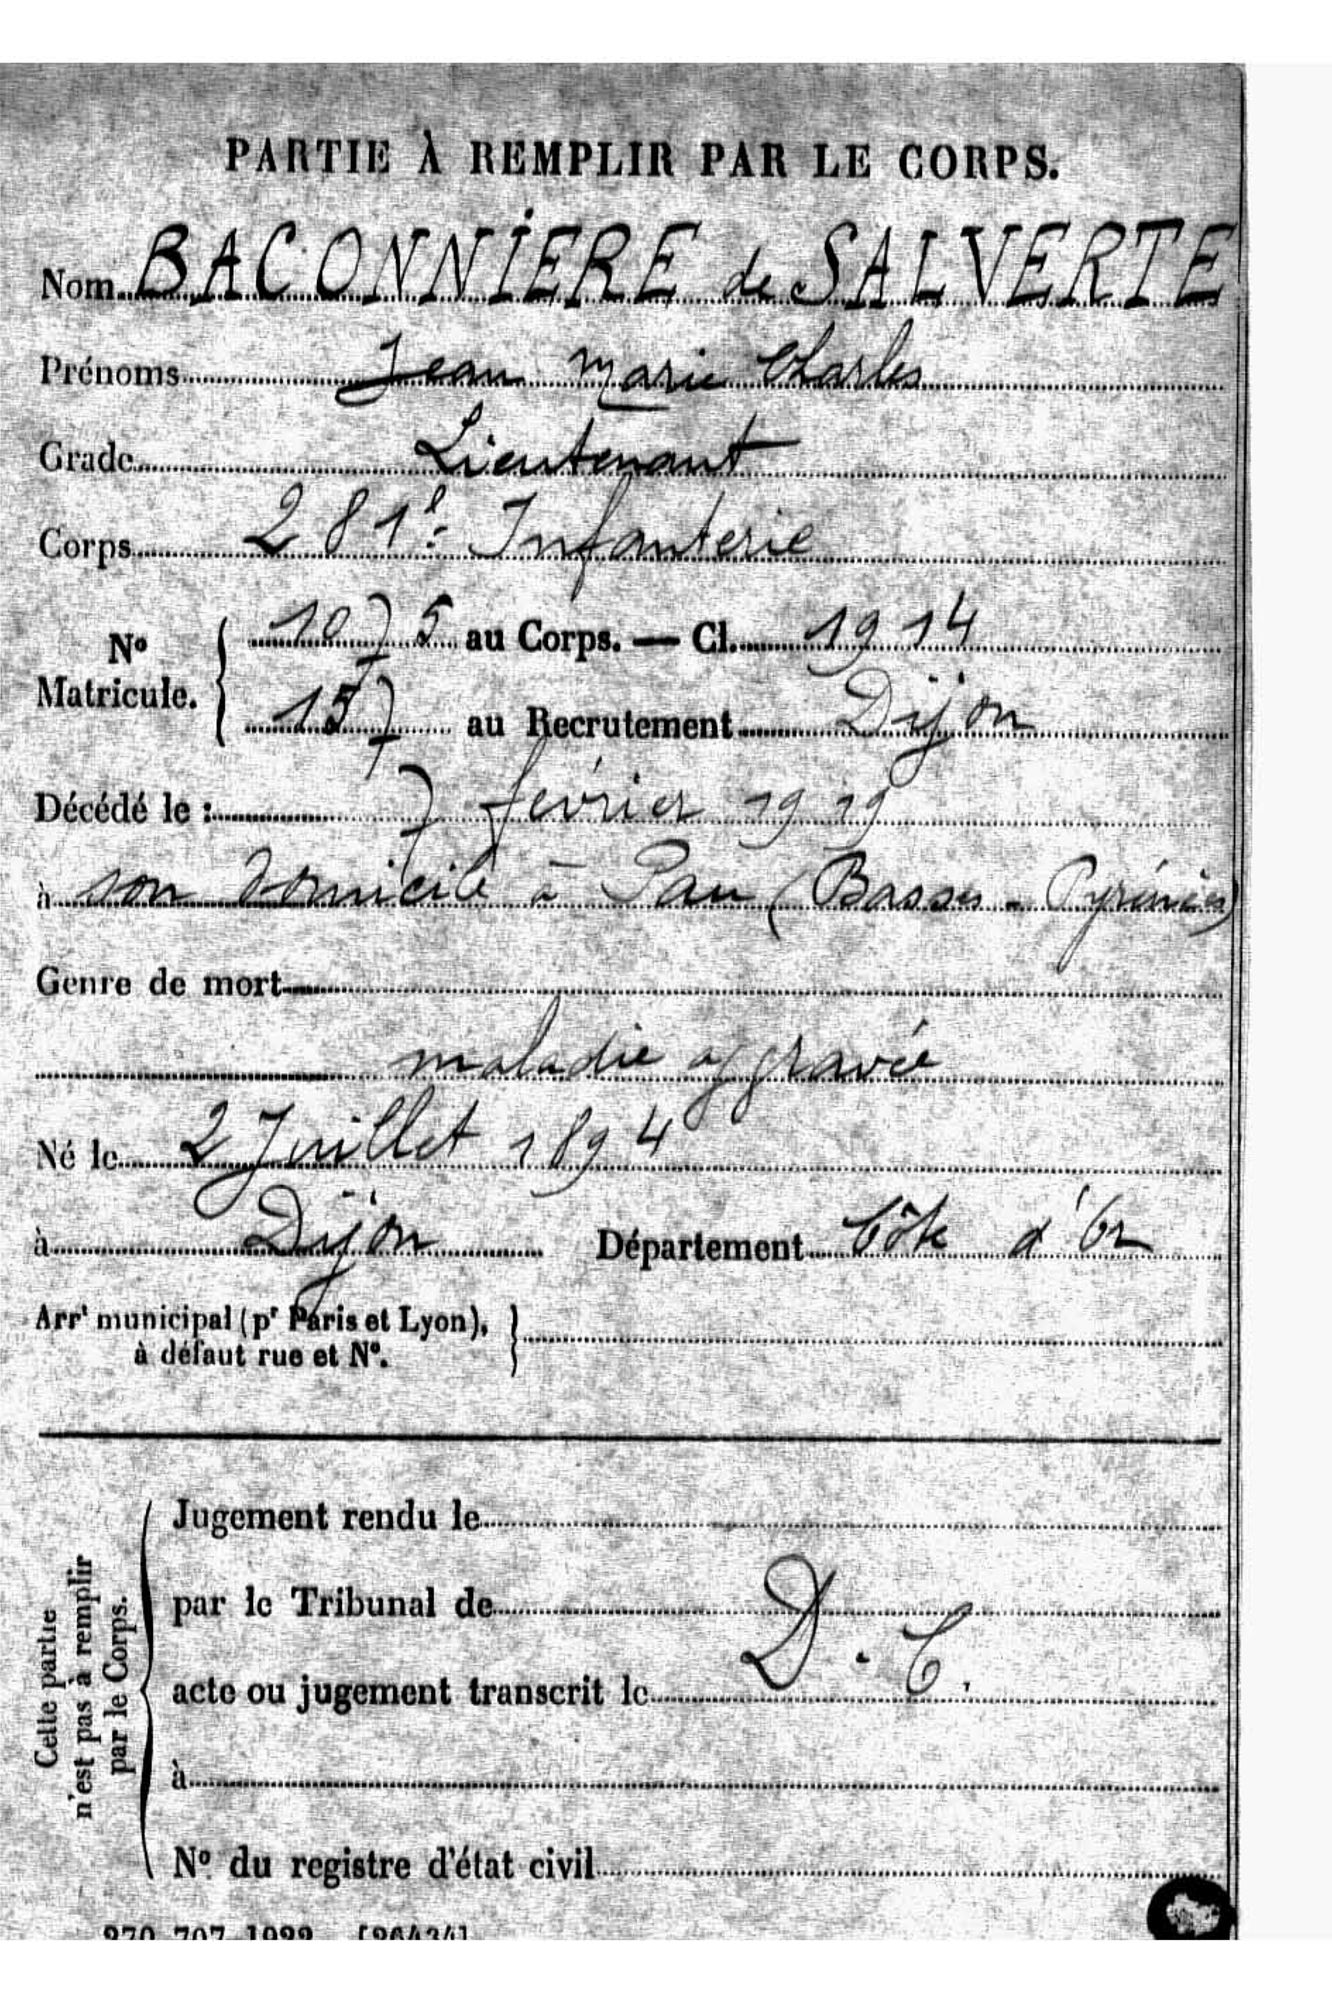 PARTIE À REMPLIR PAR LE CORPS.
Nom BACONNIERE de SALVERTE
Prénoms Jean Marie Charles
Grade Lieutenant
Corps 281e Infanterie
No Matricule. { 1075 au Corps. — Cl. 1914
157 au Recrutement Dijon
Décédé le : 7 février 1919
à son domicile à Pau (Basses-Pyrénées)
Genre de mort
maladie aggravée
Né le 2 Juillet 1894
à Dijon Département Côte d'Or
Arrt municipal (pr Paris et Lyon),
à défaut rue et No.
Cette partie
n'est pas à remplir
par le Corps.
Jugement rendu le
par le Tribunal de
acte ou jugement transcrit le D. C.
à
No du registre d'état civil
270-707-1922. [26434]